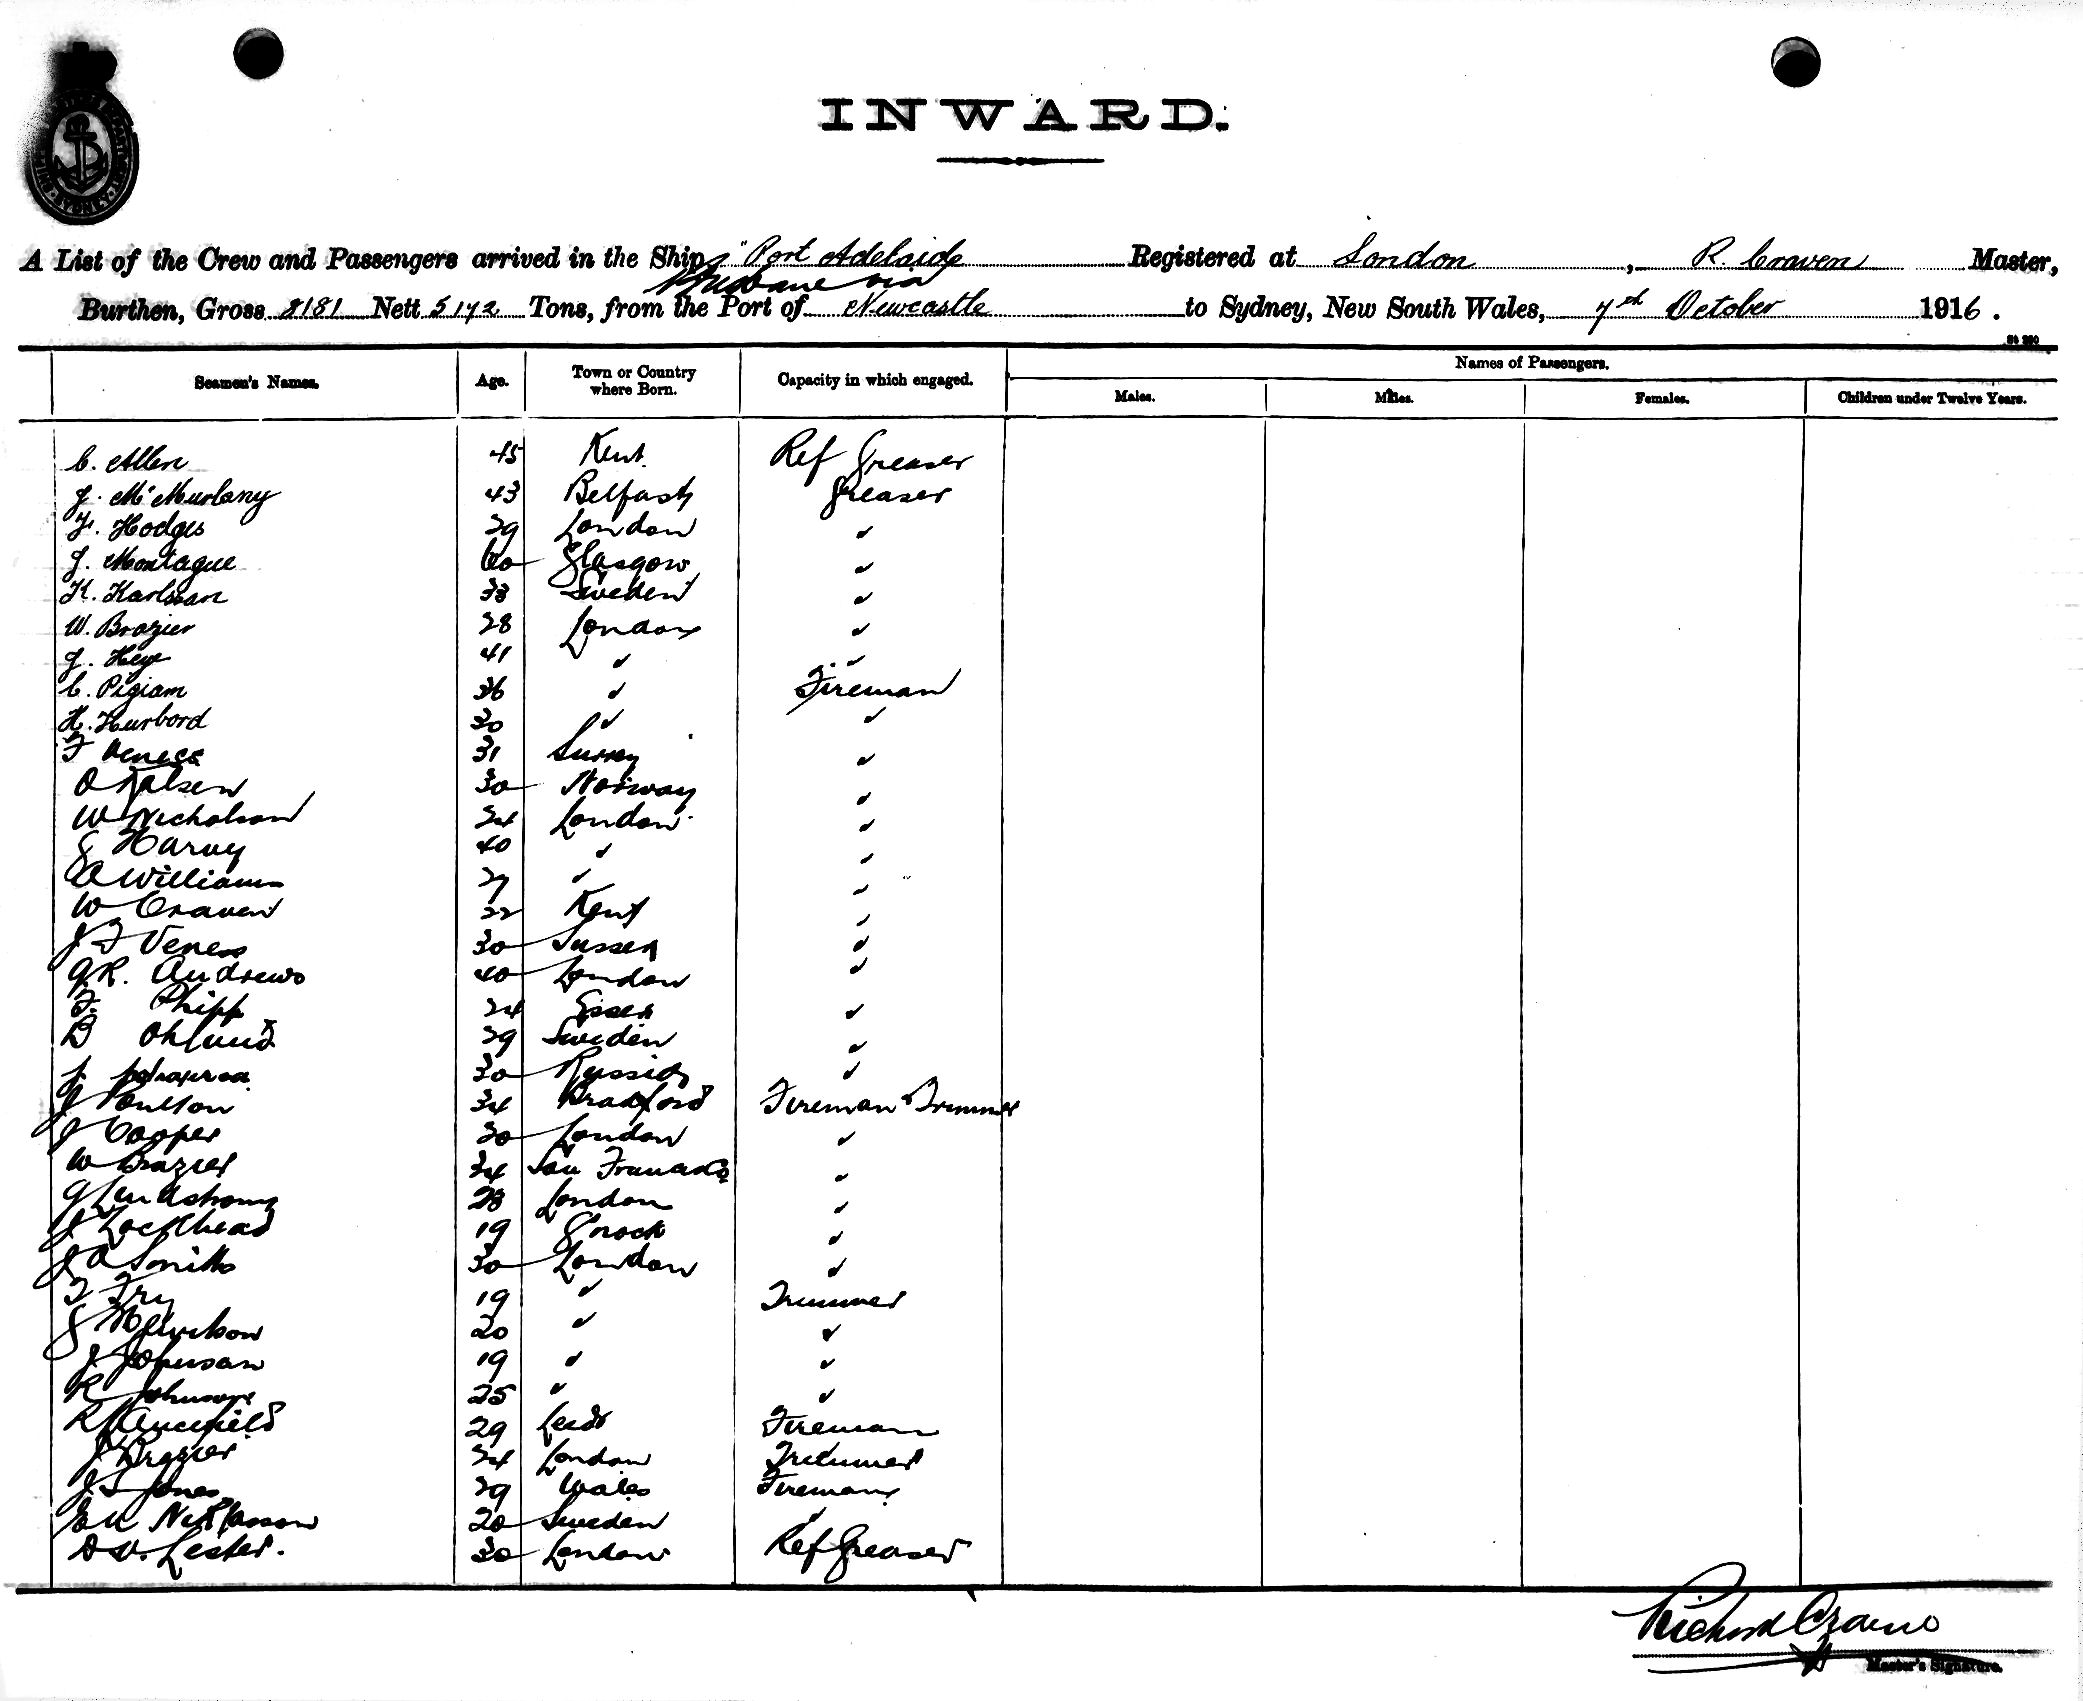 INWARD.
A List of the Crew and Passengers arrived in the Ship "Port Adelaide Registered at London, R. Craven Master,
Brisbane via
Burthen, Gross 8181 Nett 5172 Tons, from the Port of Newcastle to Sydney, New South Wales, 7th October 1916.
Names of Passengers.
Seamen's Names. Age. Town or Country where Born. Capacity in which engaged. Males. Males. Females. Children under Twelve Years.
C. Allen 45 Kent. Ref Greaser
J. McMurlany 43 Belfast Greaser
F. Hodges 29 London "
J. Montague 60 Glasgow "
K. Karlsson 33 Sweden "
W. Brazier 28 London "
J. Heys 41 " "
C. Pigram 36 " Fireman
H. Hurbord 30 " "
F Veness 31 Surrey "
O 30 Norway "
W Nicholson 24 London "
G Harvy 40 " "
A Williams 27 " "
W Craven 22 Kent "
J F Veness 30 Sussex "
G R. Andrews 40 London "
F. Phipp 24 Essex "
B Ohlund 29 Sweden "
30 Russia "
J Poulton 34 Bradford Fireman & Trimmer
J Cooper 30 London "
W Brazier 34 San Francisco "
G Lundstrom 28 London "
J Lockhead 19 G'nock "
J A Smith 30 London "
F Fry 19 " Trimmer
G 20 " "
J Johnson 19 " "
R Johnson 25 " "
R 29 Leeds Fireman
J Brazier 24 London Trimmer
J S Jones 29 Wales Fireman
Niklasson 20 Sweden "
D W. Lester. 30 London Ref Greaser
Richard Craven
Master's Signature.